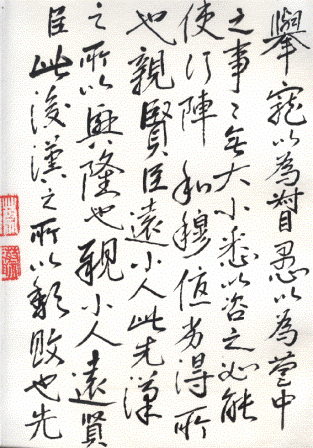 舉寵以為督愚以為營中
之事〻無大小悉以咨之必能
使行陣和穆優劣得所
也親賢臣遠小人此先漢
之所以興隆也親小人遠賢
臣此後漢之所以頹敗也先